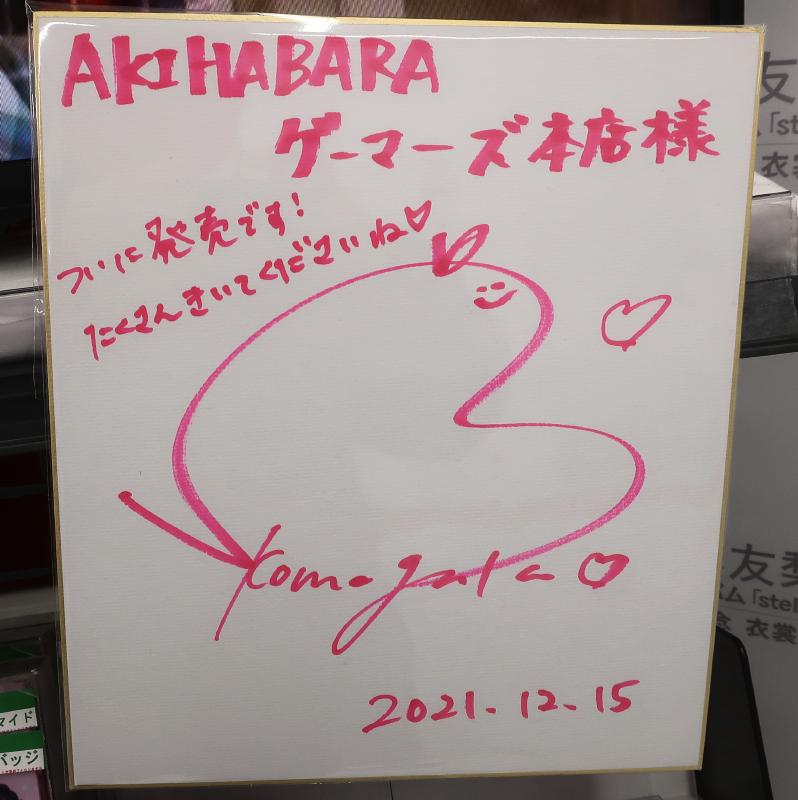 AKIHABARA
ゲーマーズ本店様
ついに発売です!
たくさんきいてくださいね♡
Komagata♡
2021.12.15
友
「st
衣裳
友梨
ム「stel
衣裳
マイド
バッジ